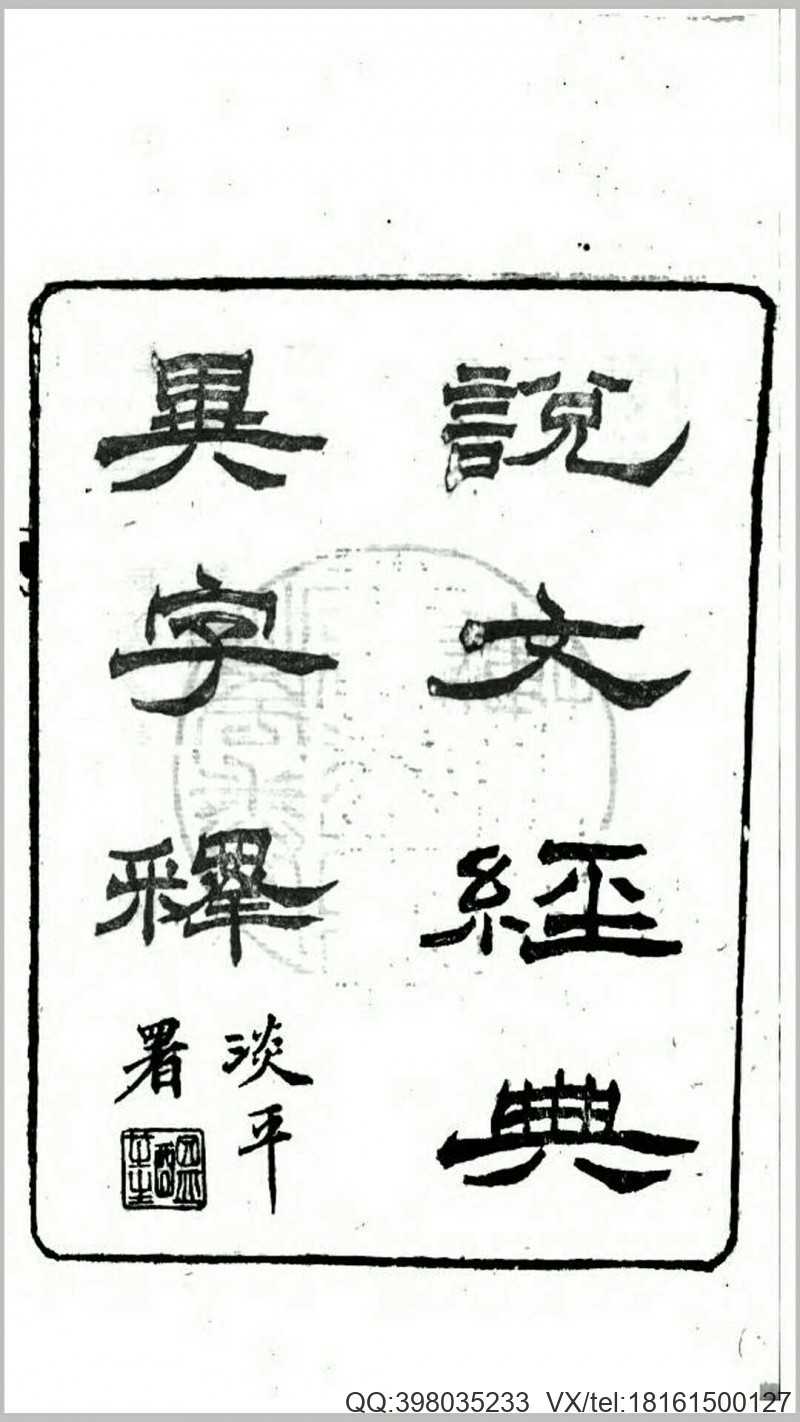 說文經典
異字釋
淡平
署
QQ:398035233 VX/tel:18161500127